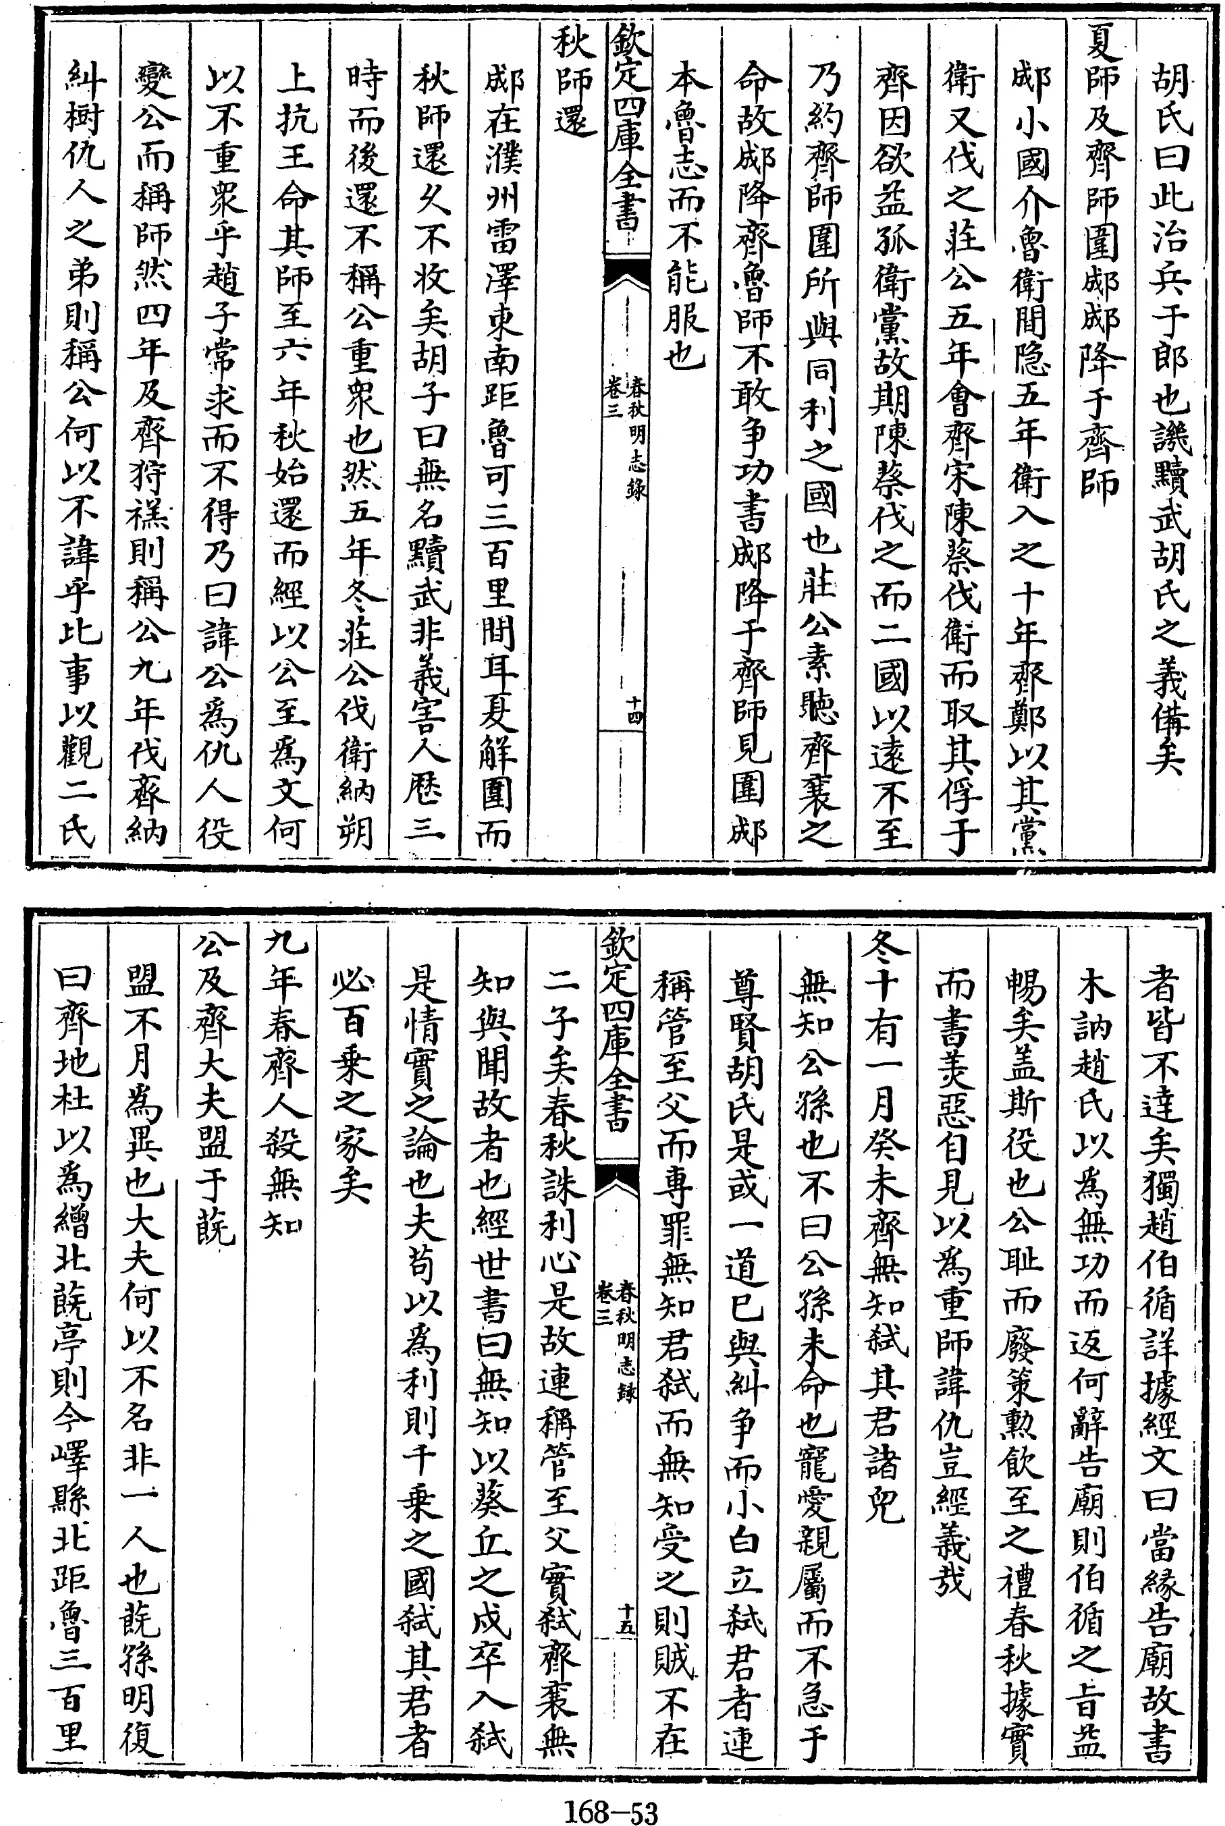 胡氏曰此治兵于郎也譏黷武胡氏之義備矣
夏師及齊師圍郕郕降于齊師
郕小國介魯衛間隐五年衛入之十年齊鄭以其黨
衛又伐之莊公五年會齊宋陳蔡伐衛而取其俘于
齊因欲益孤衛黨故期陳蔡伐之而二國以遠不至
乃約齊師圍所與同利之國也莊公素聽齊襄之
命故郕降齊魯師不敢争功書郕降于齊師見圍郕
本魯志而不能服也
欽定四庫全書
春秋明志錄
卷三
十四
秋師還
郕在濮州雷澤東南距魯可三百里間耳夏解圍而
秋師還久不收矣胡子曰無名黷武非義害人歴三
時而後還不稱公重衆也然五年冬莊公伐衛納朔
上抗王命其師至六年秋始還而經以公至為文何
以不重衆乎趙子常求而不得乃曰諱公為仇人役
變公而稱師然四年及齊狩禚則稱公九年伐齊納
糾樹仇人之弟則稱公何以不諱乎此事以觀二氏
者皆不達矣獨趙伯循詳據經文曰當緣告廟故書
木訥趙氏以為無功而返何辭告廟則伯循之旨益
暢矣盖斯役也公耻而廢策勲飲至之禮春秋據實
而書羙惡自見以為重師諱仇豈經義哉
冬十有一月癸未齊無知弑其君諸兒
無知公孫也不曰公孫未命也寵愛親屬而不急于
尊賢胡氏是或一道已與糾争而小白立弑君者連
稱管至父而專罪無知君弑而無知受之則賊不在
欽定四庫全書
春秋明志錄
卷三
十五
二子矣春秋誅利心是故連稱管至父實弑齊襄無
知與聞故者也經世書曰無知以葵丘之戍卒入弑
是情實之論也夫苟以為利則千乘之國弑其君者
必百乗之家矣
九年春齊人殺無知
公及齊大夫盟于蔇
盟不月為異也大夫何以不名非一人也蔇孫明復
曰齊地杜以為繒北蔇亭則今嶧縣北距魯三百里
168—53